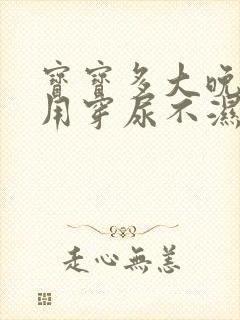 寶寶多大晚
用穿尿不濕
走心無恙